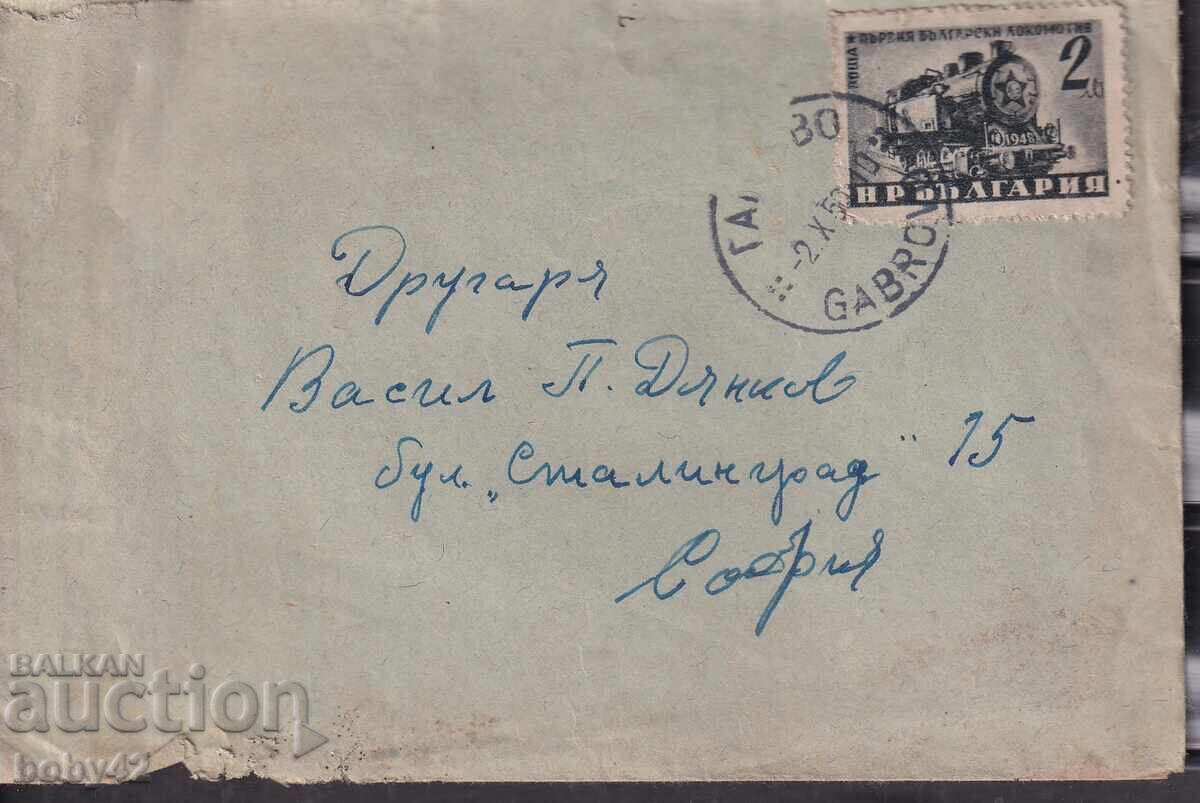 ★ ПЪРВИЯ БЪЛГАРСКИ ЛОКОМОТИВ
2 лв
1948
НР БЪЛГАРИЯ
-2.X.50.
GABROVO
Другаря
Васил П. Дянков
бул. „Сталинград" 15
София
BALKAN
auction
boby42